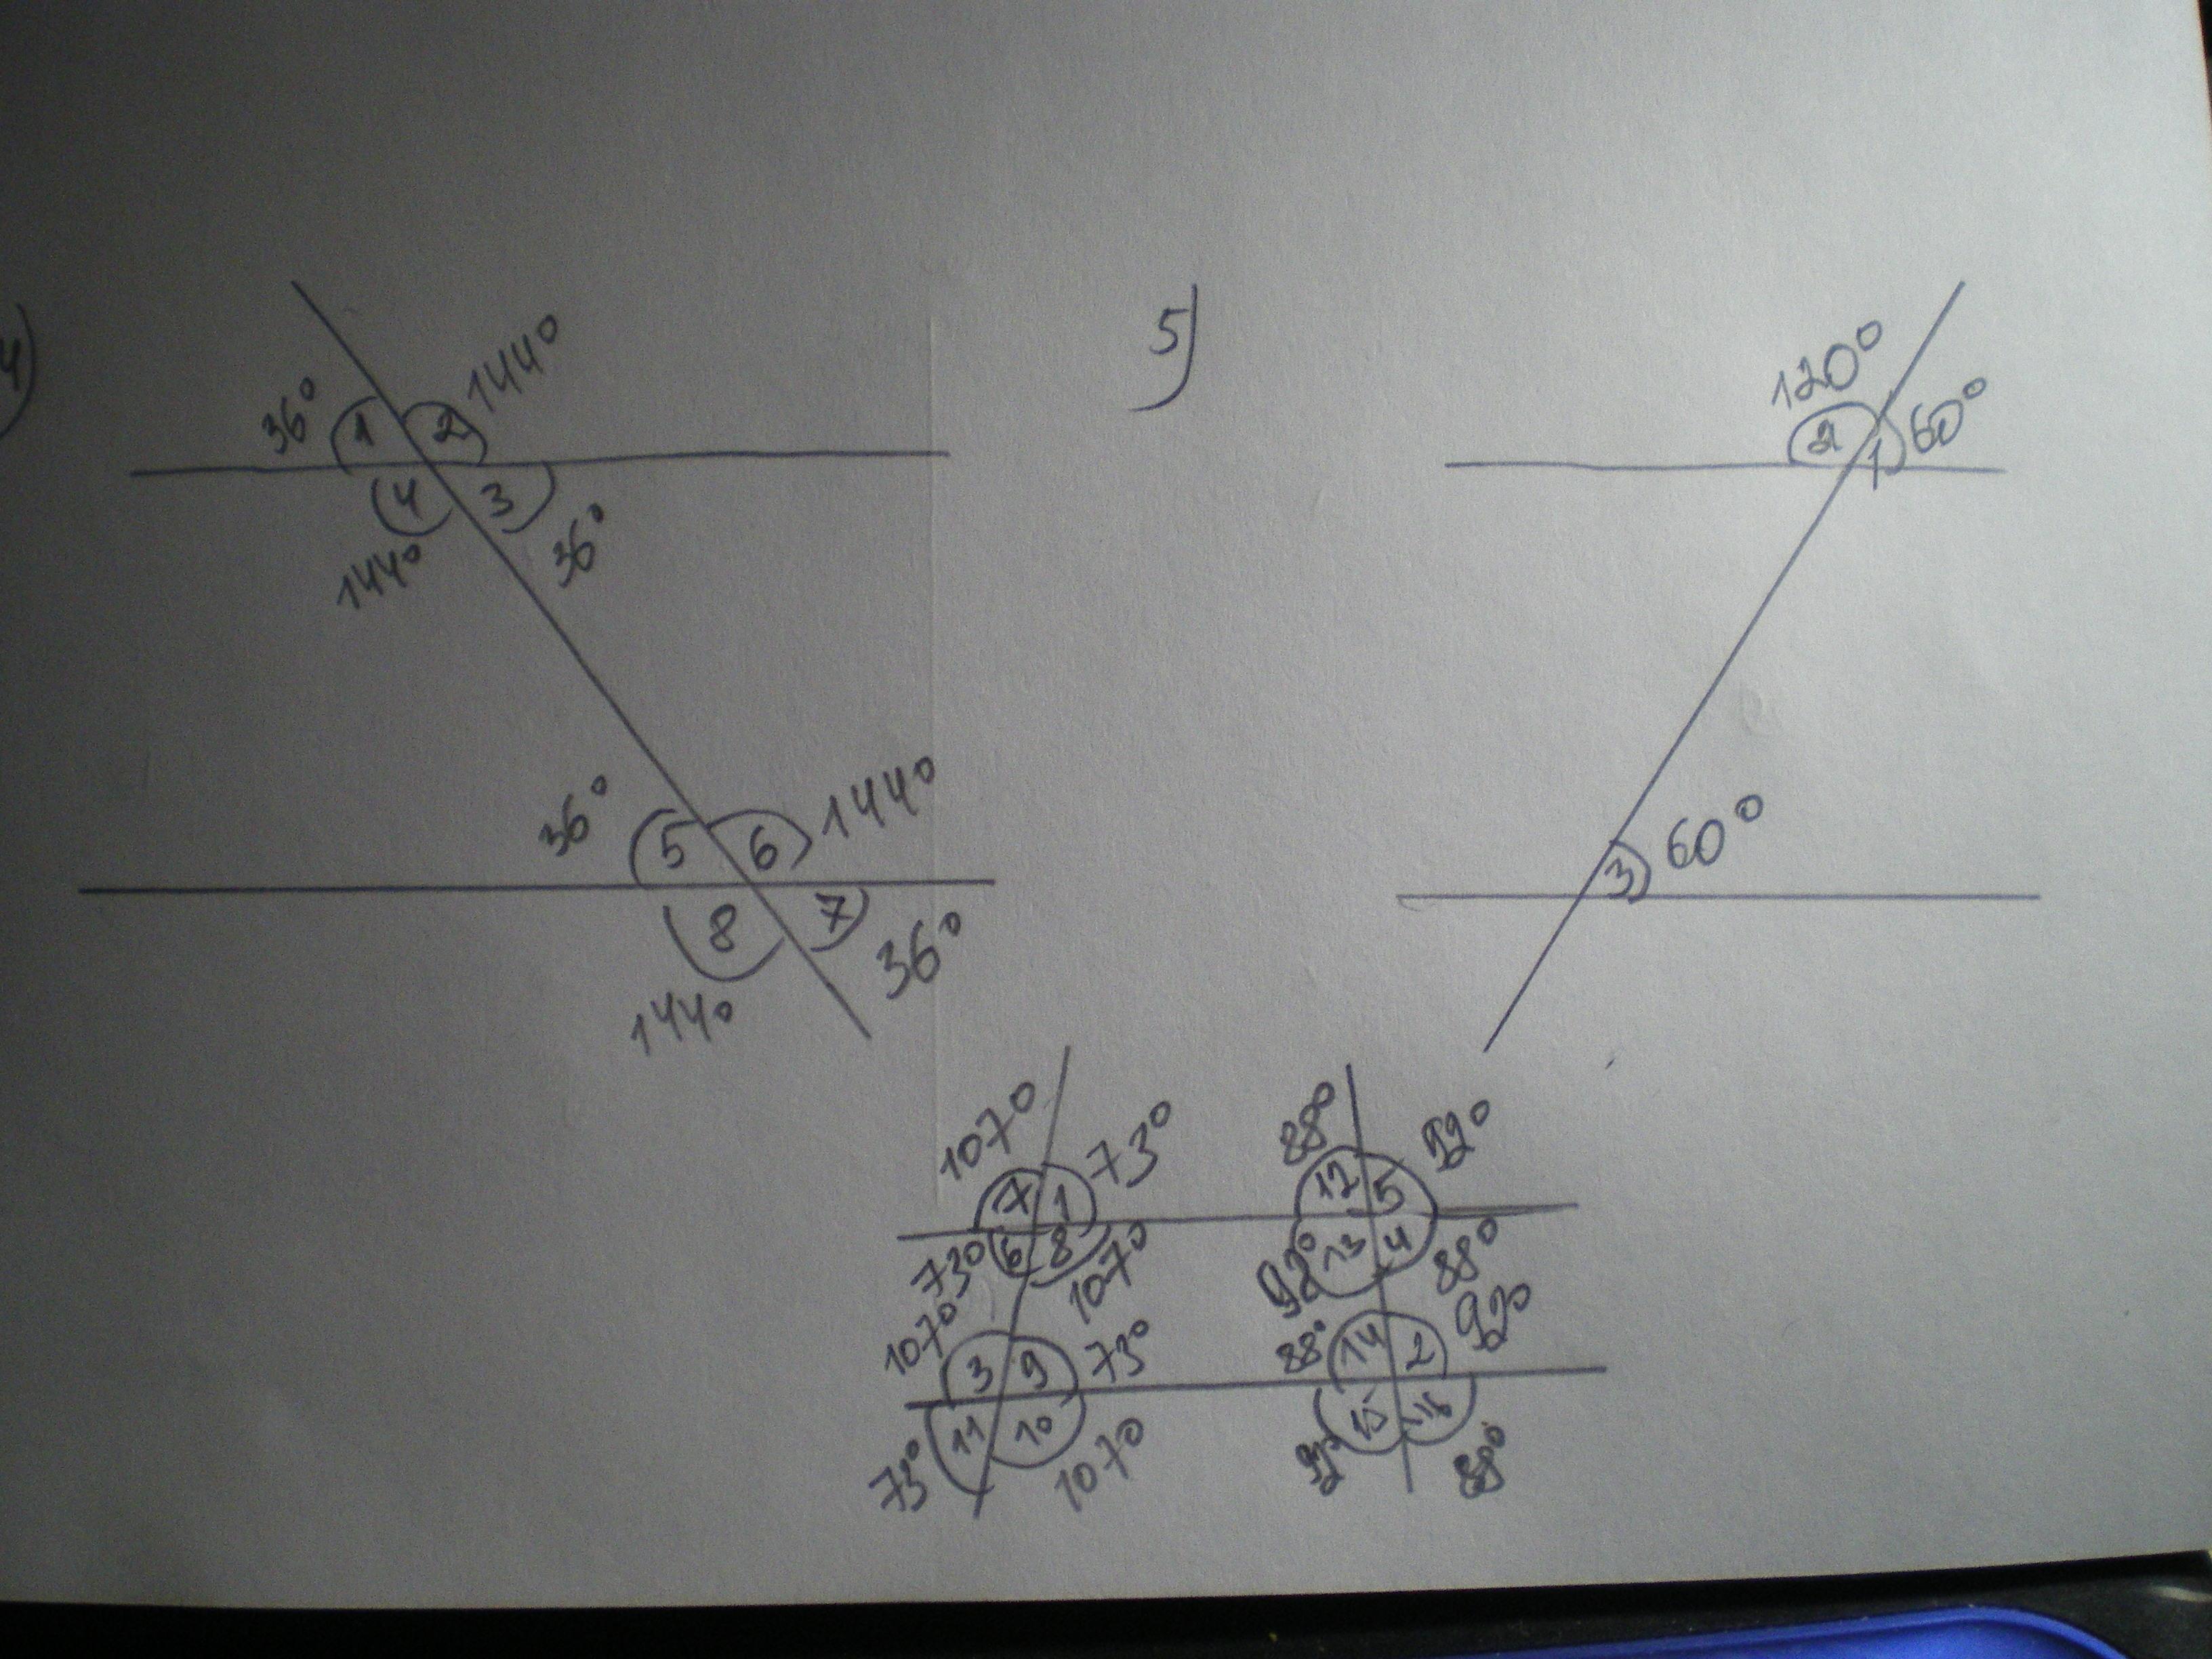 4)
36° 1 2 144°
4 3
144° 36°
36° 5 6 144°
8 7 36°
144°
5)
120° 60°
2 1
3 60°
107° 73° 88° 92°
7 1 12 5
73° 6 8 107° 92° 13 4 88°
107° 3 9 73° 88° 14 2 92°
11 10 15 16
73° 107° 92° 88°